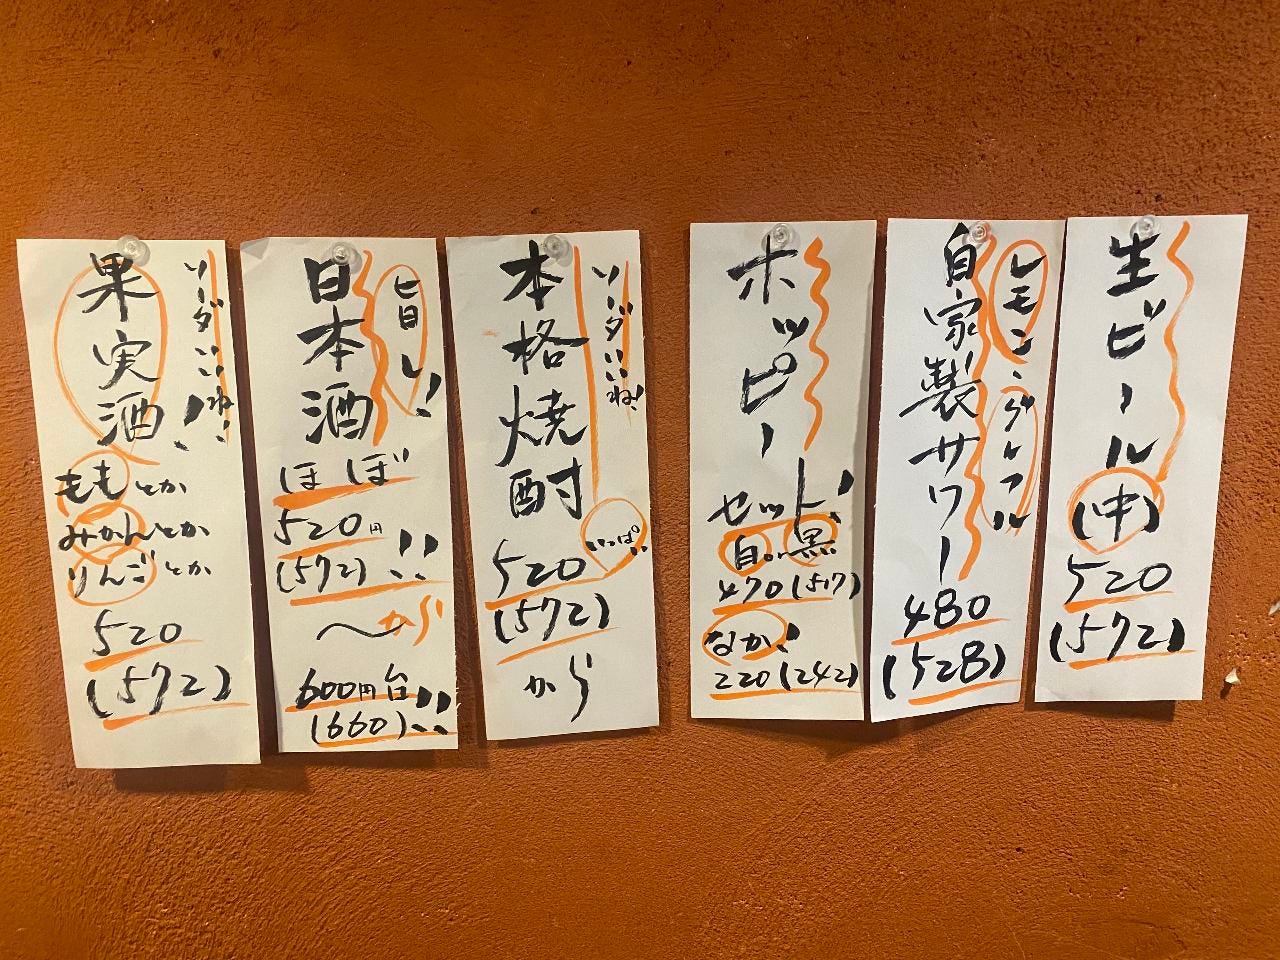 生ビール
(中)
520
(572)
レモン、グレフル
自家製サワー
480
(528)
ホッピー
セット!
白or黒
470(517)
なか!
220(242)
ソーダいいね!
本格焼酎
いっぱい
520
(572)
から
旨し!
日本酒
ほぼ
520円
(572)!!
〜から
600円台
(660)!!
ソーダいいね!
果実酒!
ももとか
みかんとか
りんごとか
520
(572)